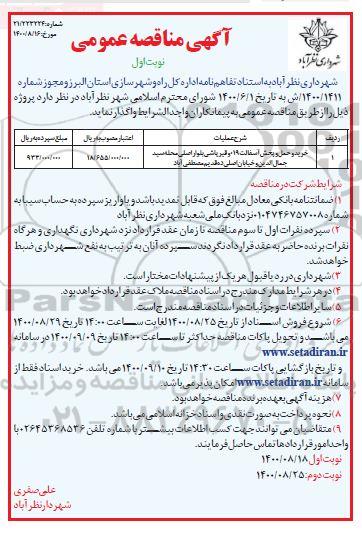 شماره:۲۱/۲۲۳۲۲۴
مورخ:۱۴۰۰/۸/۱۶
آگهی مناقصه عمومی
نوبت اول
شهرداری نظرآباد
شهرداری نظرآباد به استناد تفاهم نامه اداره کل راه و شهرسازی استان البرز و مجوز شماره
۱۴۰۰/۱۴۱۱/ش به تاریخ ۱۴۰۰/۶/۱ شورای محترم اسلامی شهر نظرآباد در نظر دارد پروژه
ذیل را از طریق مناقصه عمومی به پیمانکاران واجد الشرایط واگذار نماید.
ردیف شرح عملیات اعتبار مصوب به ریال مبلغ سپرده به ریال
۱ خرید و حمل و پخش آسفالت ۰-۱۹ و قیرپاشی بلوار اصلی محله سید جمال الدین و خیابان اصلی ده قدیم مصطفی آباد ۱۸/۶۵۵/۰۰۰/۰۰۰ ۹۳۳/۰۰۰/۰۰۰
شرایط شرکت در مناقصه
۱) ضمانتنامه بانکی معادل مبالغ فوق که قابل تمدید باشد و یا واریز سپرده به حساب سیبا به
شماره ۰۱۰۴۷۴۶۷۵۷۰۰۸ نزد بانک ملی شعبه شهرداری نظرآباد
۲) سپرده نفرات اول تا سوم مناقصه تا زمان عقد قرارداد نزد شهرداری نگهداری و هرگاه
نفرات برنده حاضر به عقد قرارداد نگردند سپرده آنان به ترتیب به نفع شهرداری ضبط
خواهد شد.
۳) شهرداری در رد یا قبول هر یک از پیشنهادات مختار است.
۴) در هر شرایط مدارک مندرج در اسناد مناقصه ملاک عقد قرارداد خواهد بود.
۵) سایر اطلاعات و جزئیات در اسناد مناقصه مندرج است.
۶) شروع فروش اسناد از تاریخ ۱۴۰۰/۰۸/۲۵ لغایت ساعت ۱۴:۰۰ تاریخ ۱۴۰۰/۰۸/۲۹
می باشد و تحویل پاکات مناقصه حداکثر تا ساعت ۱۴:۰۰ تاریخ ۱۴۰۰/۰۹/۰۹ در سامانه
www.setadiran.ir
و تاریخ بازگشایی پاکات ساعت ۱۴:۳۰ تاریخ ۱۴۰۰/۰۹/۱۰ می باشد. خرید اسناد فقط از
سامانه www.setadiran.ir امکان پذیر می باشد.
۷) هزینه آگهی بعهده برنده مناقصه خواهد بود.
۸) نحوه پرداخت به صورت نقدی و اسناد خزانه اسلامی می باشد.
۹) متقاضیان می توانند جهت کسب اطلاعات بیشتر با شماره تلفن ۰۲۶۴۵۳۶۸۵۳۶ با
واحد امور قراردادها تماس حاصل فرمایند.
نوبت اول: ۱۴۰۰/۰۸/۱۸
نوبت دوم: ۱۴۰۰/۰۸/۲۵
علی صفری
شهردار نظرآباد